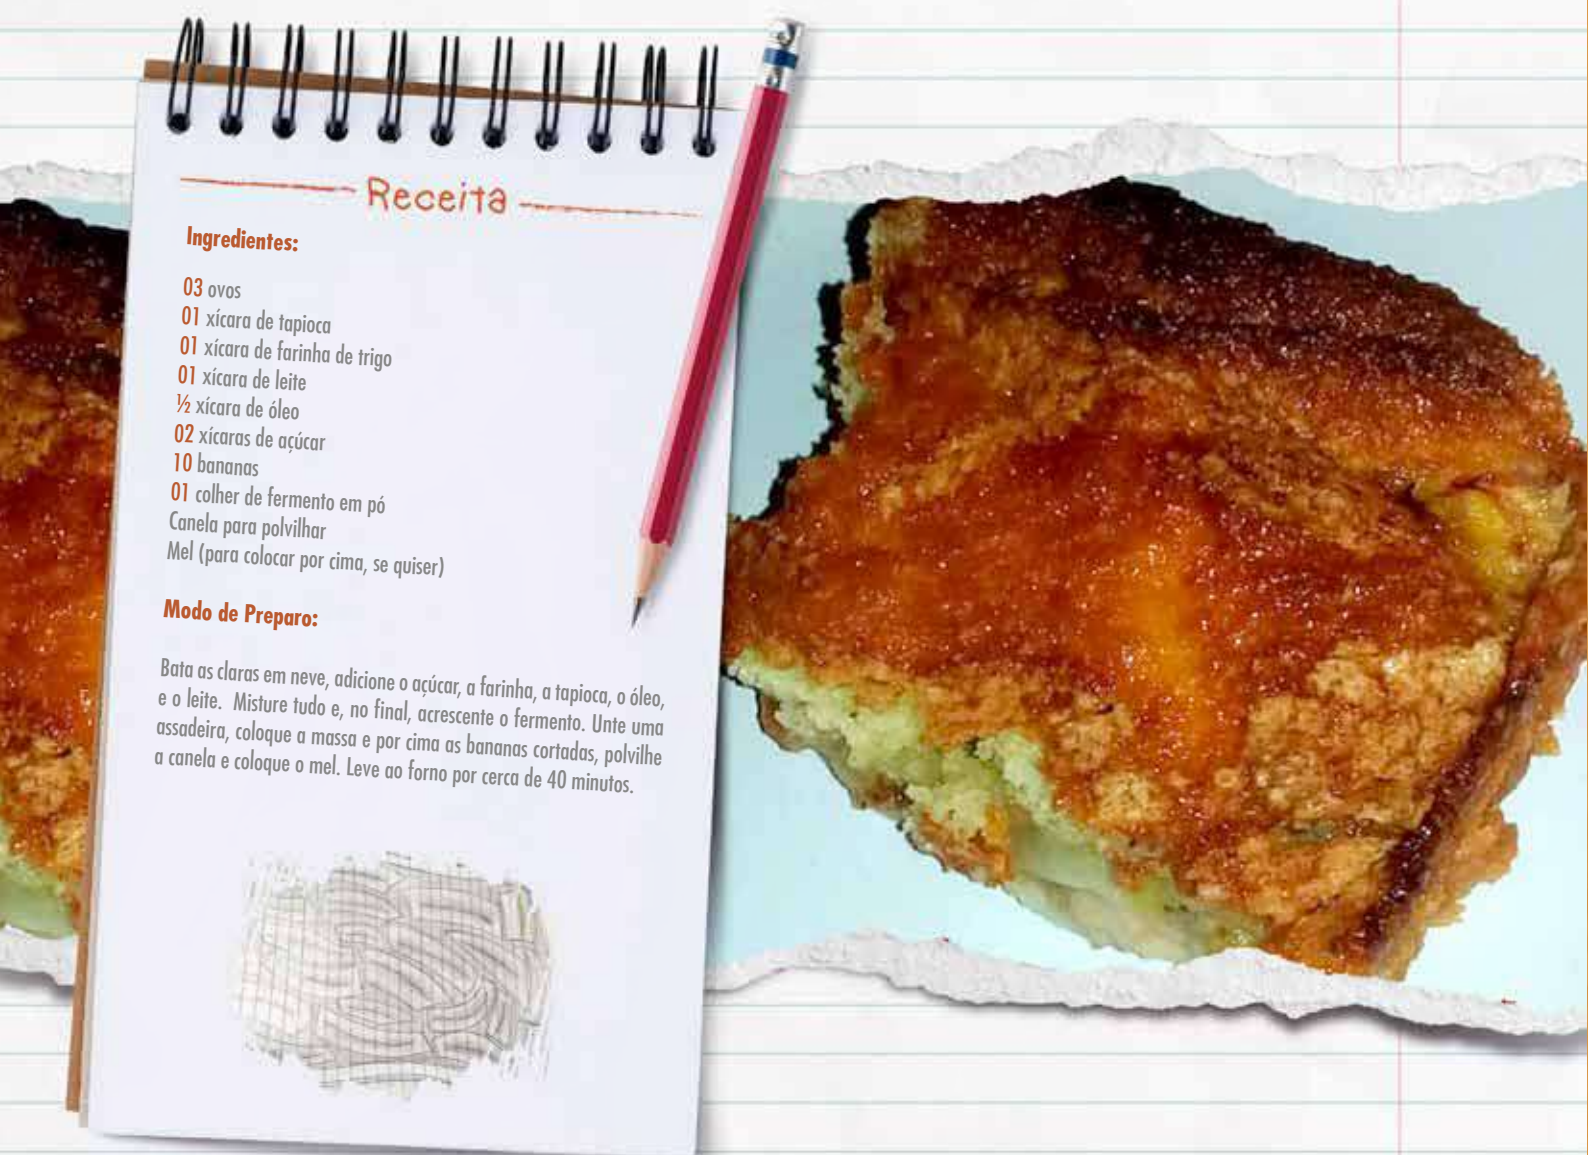 Receita
Ingredientes:
03 ovos
01 xícara de tapioca
01 xícara de farinha de trigo
01 xícara de leite
½ xícara de óleo
02 xícaras de açúcar
10 bananas
01 colher de fermento em pó
Canela para polvilhar
Mel (para colocar por cima, se quiser)
Modo de Preparo:
Bata as claras em neve, adicione o açúcar, a farinha, a tapioca, o óleo,
e o leite. Misture tudo e, no final, acrescente o fermento. Unte uma
assadeira, coloque a massa e por cima as bananas cortadas, polvilhe
a canela e coloque o mel. Leve ao forno por cerca de 40 minutos.